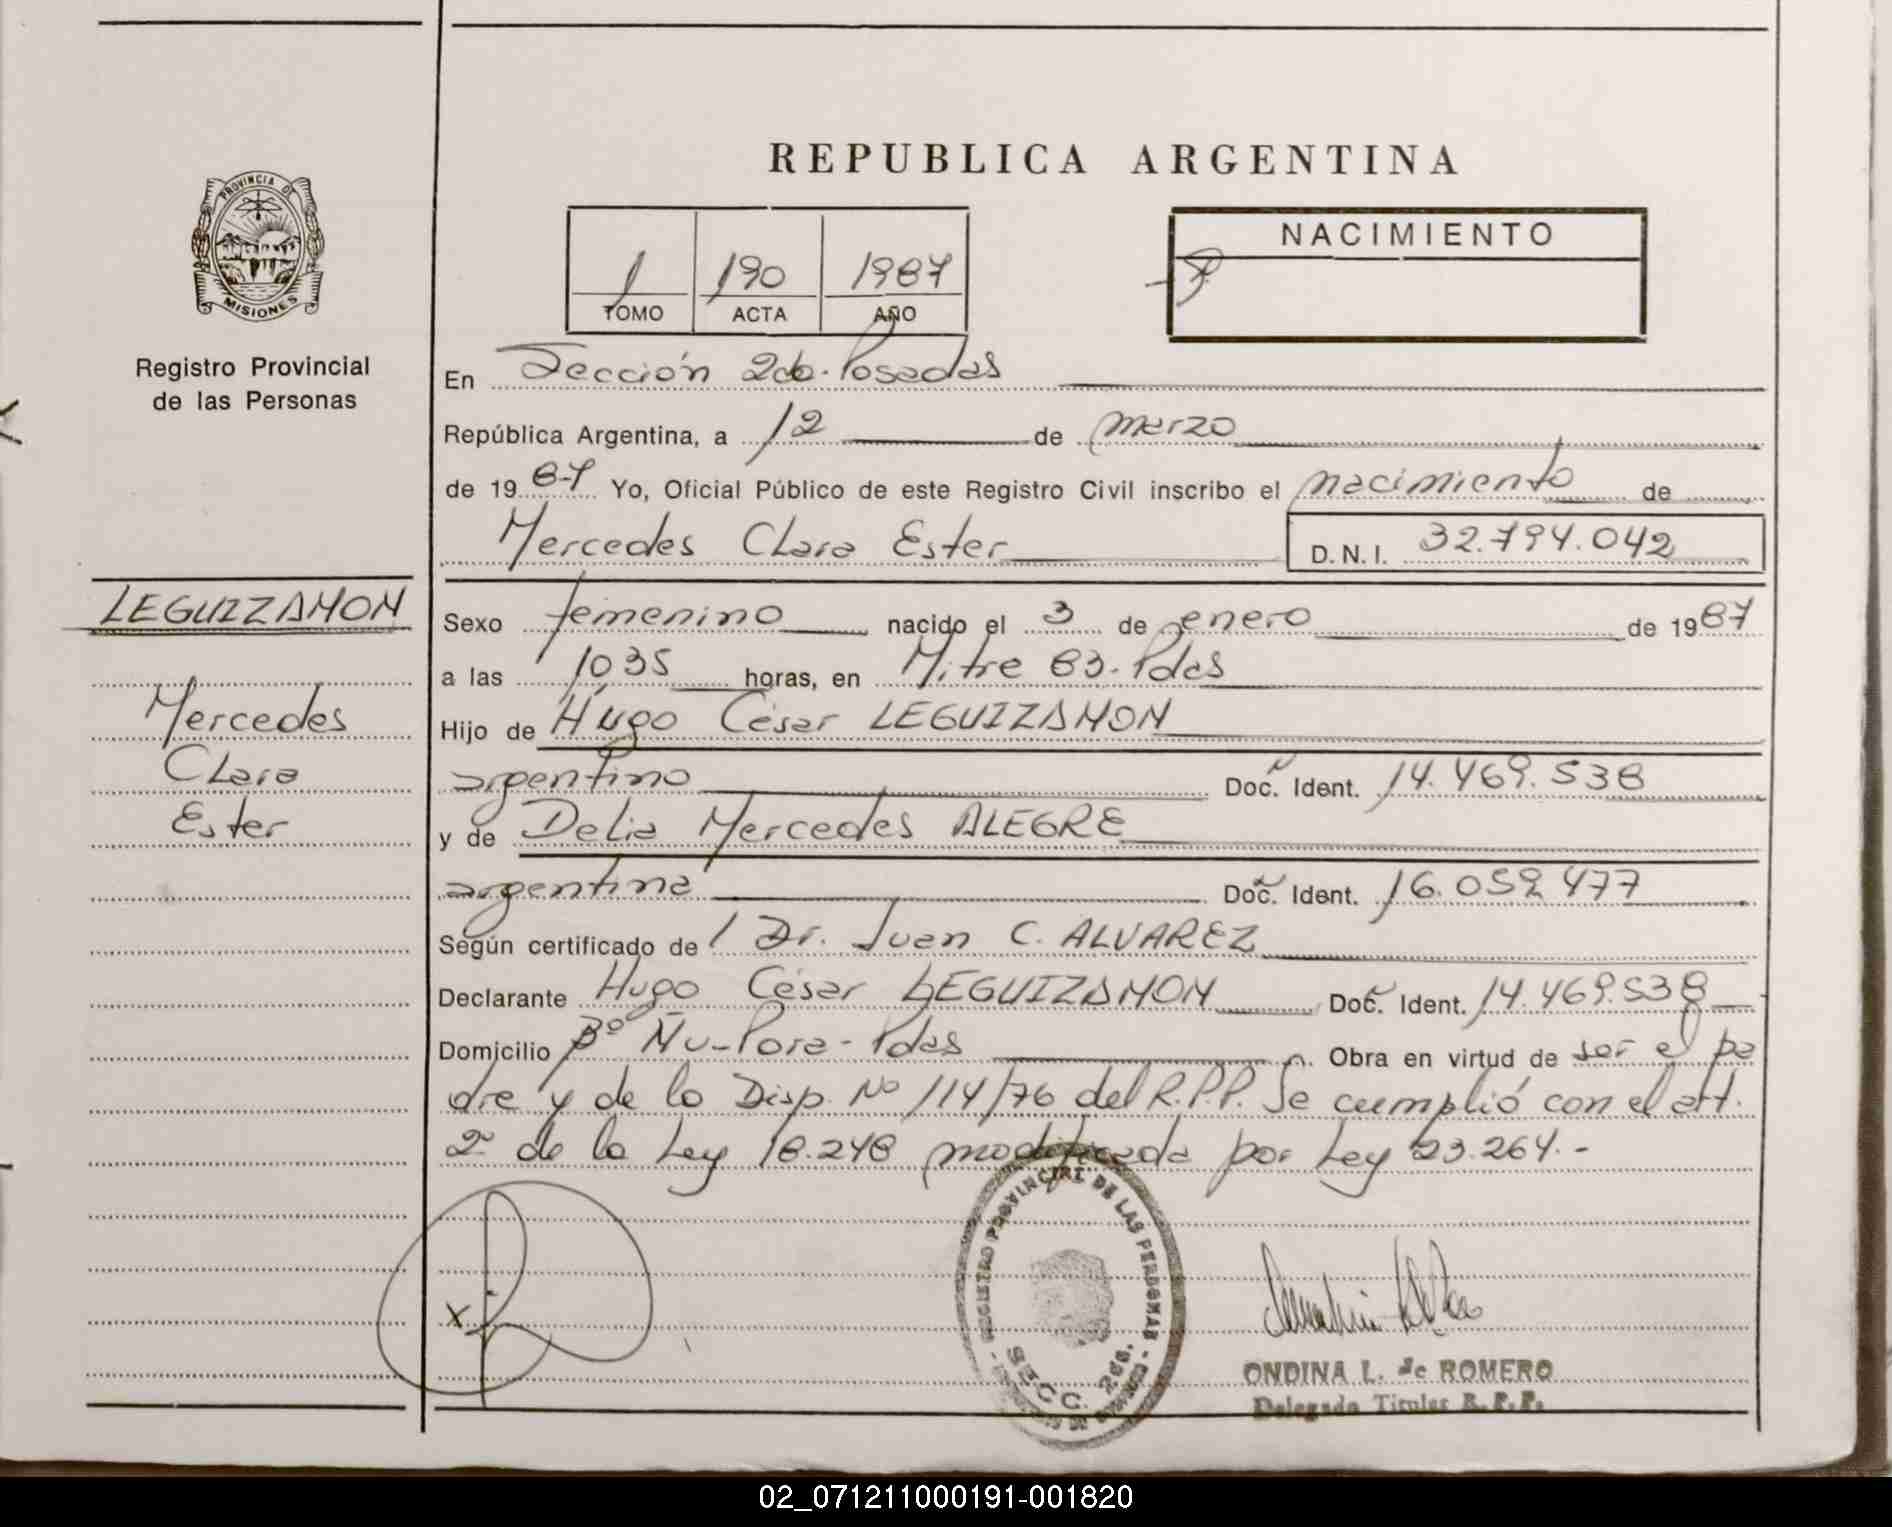 REPUBLICA ARGENTINA
PROVINCIA DE
MISIONES
Registro Provincial
de las Personas
1 190 1987
TOMO ACTA AÑO
NACIMIENTO
En Sección 2da. Posadas
República Argentina, a 12 de marzo
de 1987 Yo, Oficial Público de este Registro Civil inscribo el nacimiento de
Mercedes Clara Ester D.N.I. 32.794.042
LEGUIZAMON
Mercedes
Clara
Ester
Sexo femenino nacido el 3 de enero de 1987
a las 1035 horas, en Mitre 83. Pdas
Hijo de Hugo César LEGUIZAMON
argentino Doc. Ident. 14.469.538
y de Delia Mercedes ALEGRE
argentina Doc. Ident. 16.052.477
Según certificado de / Dr. Juan C. ALVAREZ
Declarante Hugo César LEGUIZAMON Doc. Ident. 14.469.538
Domicilio Bº Ñu-Pora-Pdas Obra en virtud de ser el pa
dre y de la Disp. Nº 114/76 del R.P.P. Se cumplió con el art.
2º de la Ley 18.248 modificada por Ley 23.264.-
REGISTRO PROVINCIAL DE LAS PERSONAS
SECC. 2da.
X
ONDINA L. de ROMERO
Delegado Titular R.P.P.
02_071211000191-001820